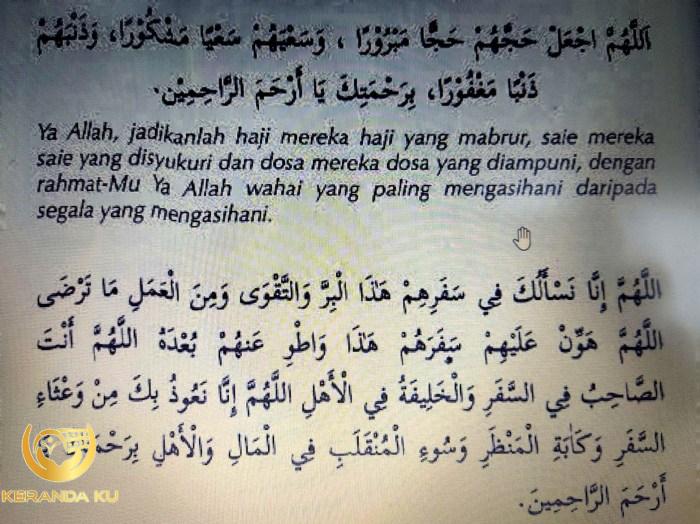 اَللّٰهُمَّ اجْعَلْ حَجَّهُمْ حَجًّا مَبْرُوْرًا ، وَسَعْيَهُمْ سَعْيًا مَشْكُوْرًا، وَذَنْبَهُمْ
ذَنْبًا مَغْفُوْرًا، بِرَحْمَتِكَ يَا أَرْحَمَ الرَّاحِمِيْنَ.
Ya Allah, jadikanlah haji mereka haji yang mabrur, saie mereka
saie yang disyukuri dan dosa mereka dosa yang diampuni, dengan
rahmat-Mu Ya Allah wahai yang paling mengasihani daripada
segala yang mengasihani.
اللَّهُمَّ إِنَّا نَسْأَلُكَ فِي سَفَرِهِمْ هَٰذَا الْبِرَّ وَالتَّقْوَى وَمِنَ الْعَمَلِ مَا تَرْضَى
اللَّهُمَّ هَوِّنْ عَلَيْهِمْ سَفَرَهُمْ هَٰذَا وَاطْوِ عَنْهُمْ بُعْدَهُ اللَّهُمَّ أَنْتَ
الصَّاحِبُ فِي السَّفَرِ وَالْخَلِيفَةُ فِي الْأَهْلِ اللَّهُمَّ إِنَّا نَعُوذُ بِكَ مِنْ وَعْثَاءِ
السَّفَرِ وَكَآبَةِ الْمَنْظَرِ وَسُوءِ الْمُنْقَلَبِ فِي الْمَالِ وَالْأَهْلِ
أَرْحَمَ الرَّاحِمِينَ.
KERANDA KU